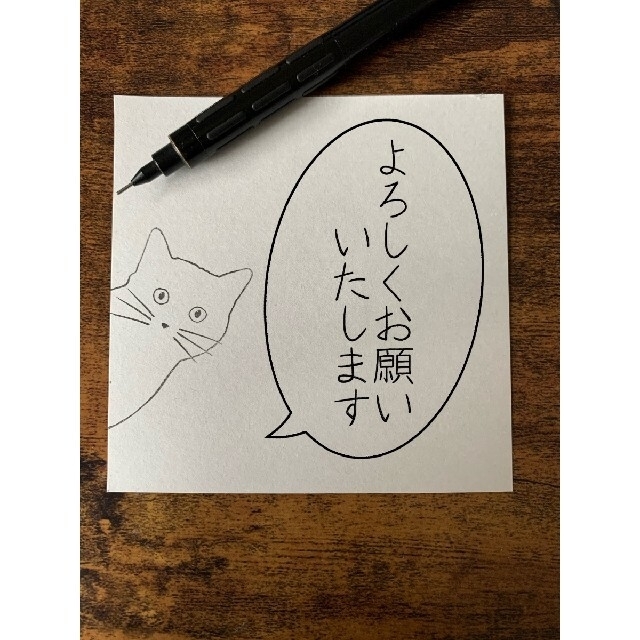 よろしくお願い
いたします